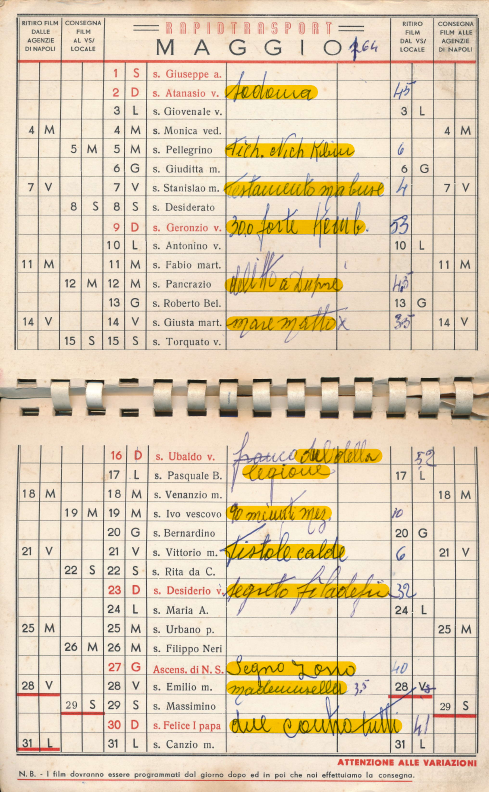 RITIRO FILM DALLE AGENZIE DI NAPOLI
CONSEGNA FILM AL VS/ LOCALE
RAPIDTRASPORT
MAGGIO 64
RITIRO FILM DAL VS/ LOCALE
CONSEGNA FILM ALLE AGENZIE DI NAPOLI
1 S s. Giuseppe a.
2 D s. Atanasio v. Sodoma 45
3 L s. Giovenale v. 3 L
4 M 4 M s. Monica ved. 4 M
5 M 5 M s. Pellegrino 6
6 G s. Giuditta m. 6 G
7 V 7 V s. Stanislao m. testamento mabuse 4 7 V
8 S 8 S s. Desiderato
9 D s. Geronzio v. forte 53
10 L s. Antonino v. 10 L
11 M 11 M s. Fabio mart. 11 M
12 M 12 M s. Pancrazio delitto a Dupre 4,5
13 G s. Roberto Bel. 13 G
14 V 14 V s. Giusta mart. mare matto x 3,5 14 V
15 S 15 S s. Torquato v.
16 D s. Ubaldo v. della 52
17 L s. Pasquale B. legione 17 L
18 M 18 M s. Venanzio m. 18 M
19 M 19 M s. Ivo vescovo 90 minuti mez 10
20 G s. Bernardino 20 G
21 V 21 V s. Vittorio m. Pistole calde 6 21 V
22 S 22 S s. Rita da C.
23 D s. Desiderio v. segreto filadelfia 32
24 L s. Maria A. 24 L
25 M 25 M s. Urbano p. 25 M
26 M 26 M s. Filippo Neri
27 G Ascens. di N. S. Segno Zorro 40
28 V 28 V s. Emilio m. mademuaselle 3,5 28 V
29 S 29 S s. Massimino 29 S
30 D s. Felice I papa due contro tutti 41
31 L 31 L s. Canzio m. 31 L
ATTENZIONE ALLE VARIAZIONI
N. B. - I film dovranno essere programmati dal giorno dopo ed in poi che noi effettuiamo la consegna.